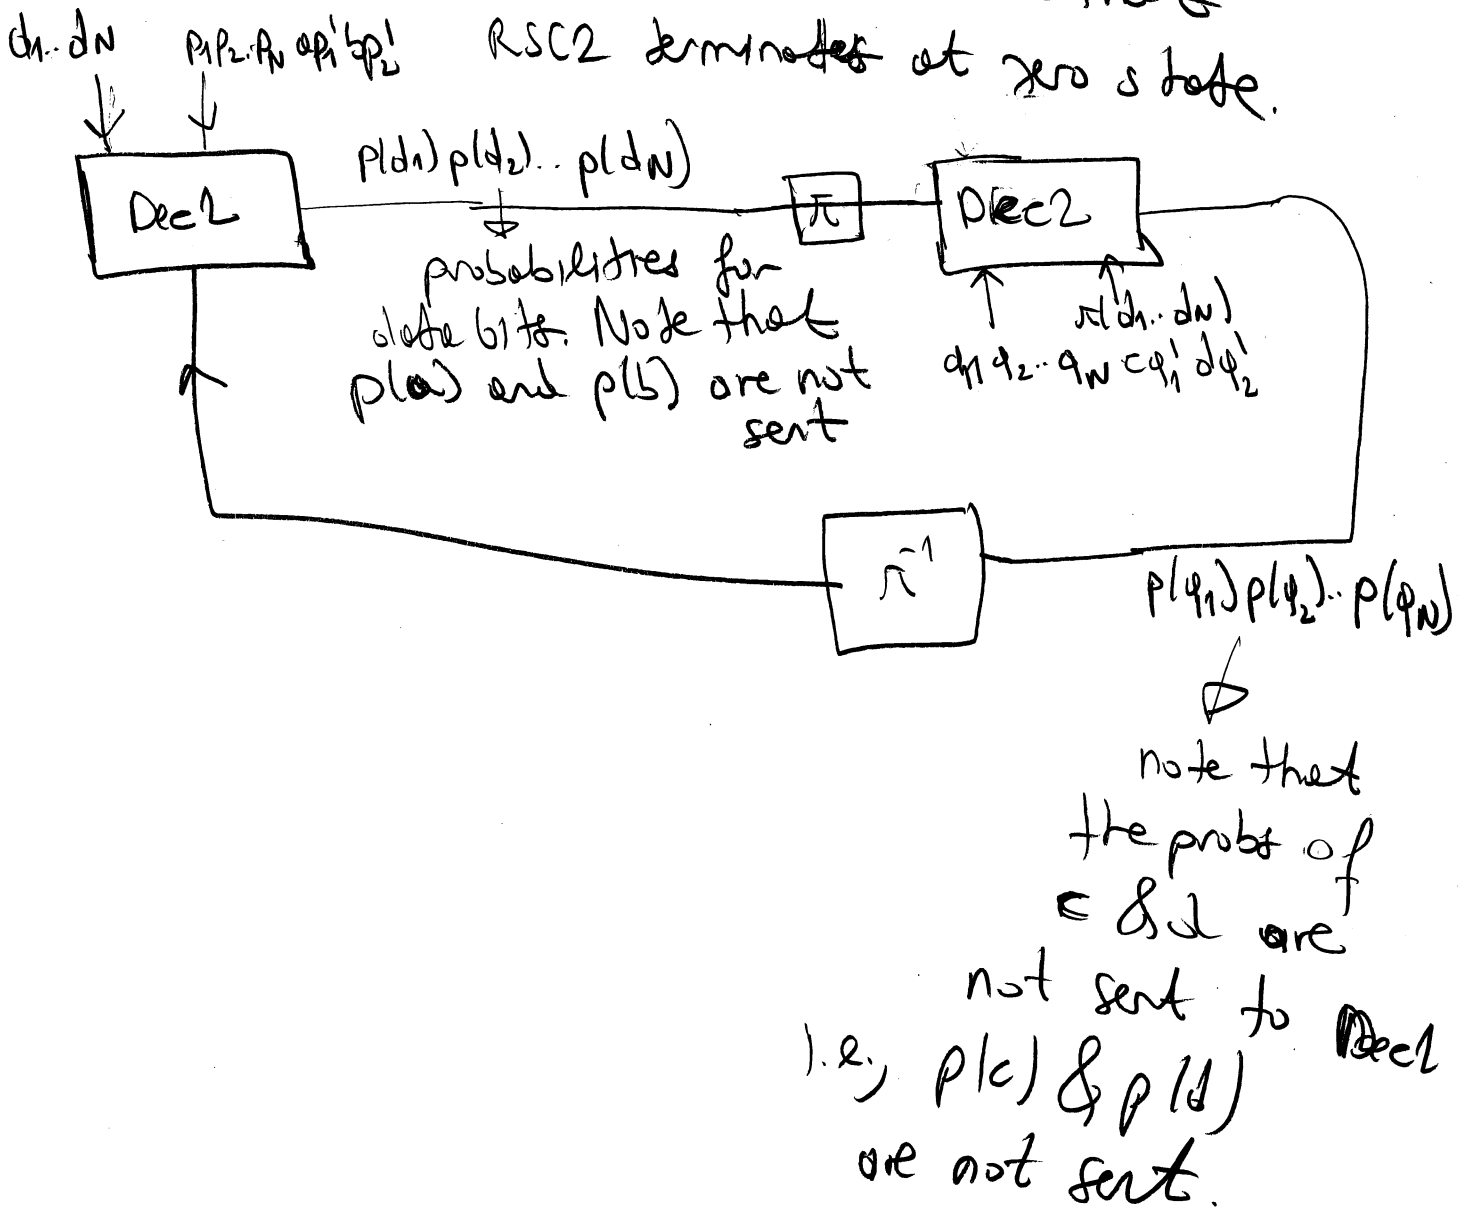 d1..dN p1p2..pN ap1'bp2' RSC2 terminates at zero state.
p(d1)p(d2)..p(dN)
Dec1
π
Dec2
probabilities for
data bits. Note that
p(a) and p(b) are not
sent
π(d1..dN)
q1q2..qN cq1'dq2'
π⁻¹
p(q1)p(q2)..p(qN)
note that
the probs of
c & d are
not sent to Dec1
i.e., p(c) & p(d)
are not sent.